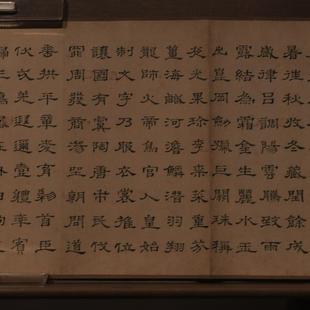 暑往秋收冬藏閏餘成
歲律呂調陽雲騰致雨
露結為霜金生麗水玉
出崑岡劍號巨闕珠稱
夜光果珍李柰菜重芥
薑海鹹河淡鱗潛羽翔
龍師火帝鳥官人皇始
制文字乃服衣裳推位
讓國有虞陶唐弔民伐
罪周發商湯坐朝問道
垂拱平章愛育黎首臣
伏戎羌遐邇壹體率賓